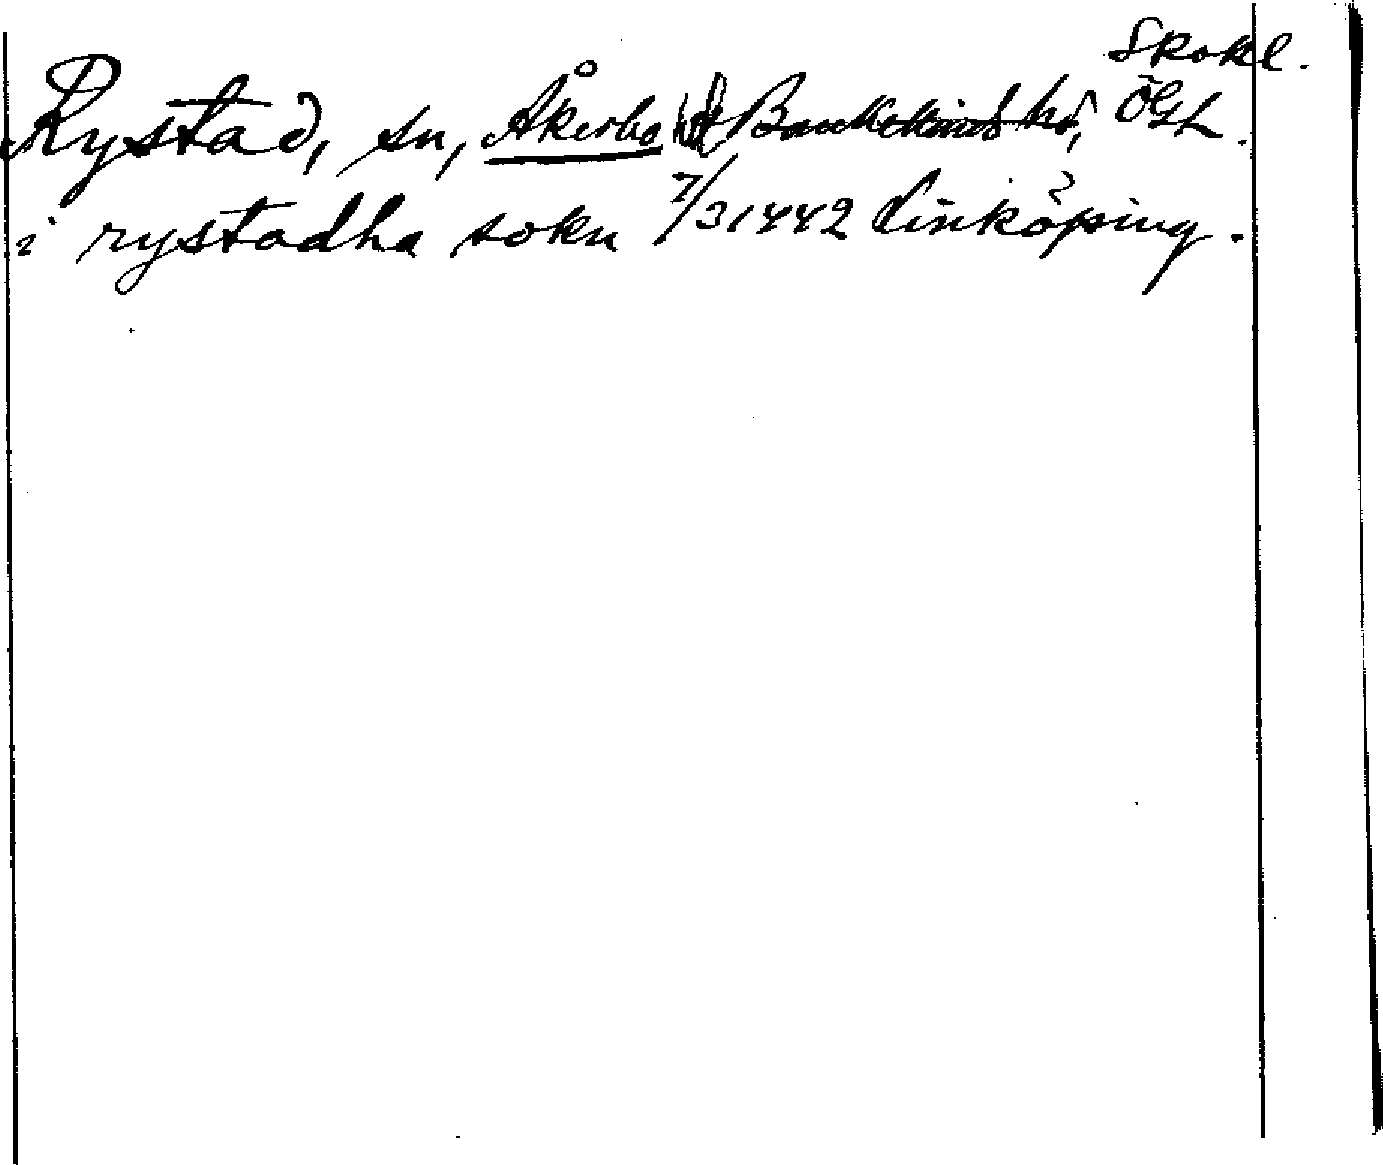 Skokl.
Rystad, sn, Åkerbo Bankekinds hd, ÖGL.
i rystadha sokn 7/3 1442 Linköping.